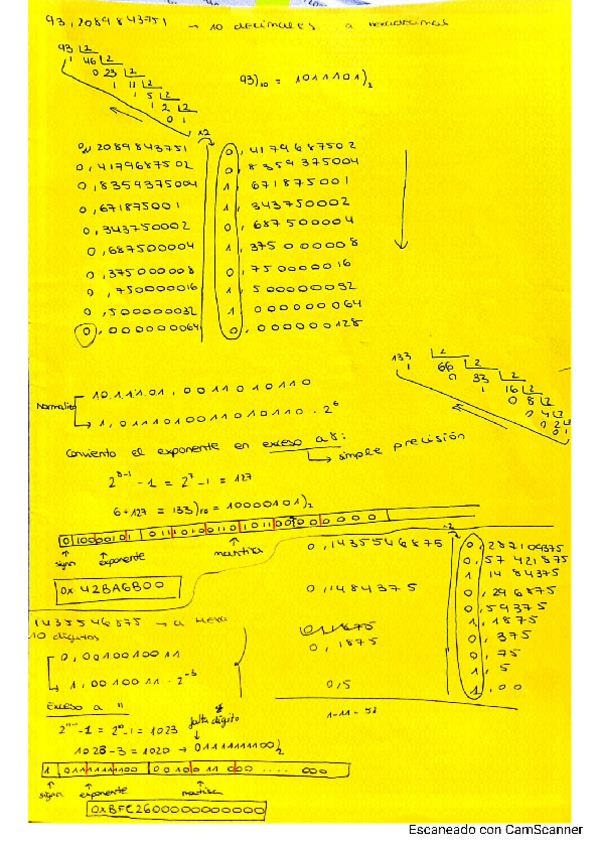 93,2089843751 → 10 decimales a hexadecimal
93 |2
1 46 |2
0 23 |2
1 11 |2
1 5 |2
1 2 |2
0 1
93)10 = 1011101)2
x2
0, 2089843751 0, 4179687502
0, 4179687502 0, 8359375004
0, 8359375004 1 671875001
0, 671875001 1 343750002
0, 343750002 0, 687500004
0, 687500004 1, 375000008
0, 375000008 0, 750000016
0, 750000016 1 500000032
0, 500000032 1 000000064
0, 000000064 0, 000000128
133 |2
1 66 |2
0 33 |2
1 16 |2
0 8 |2
0 4 |2
0 2 |2
0 1
1011101, 0011010110
Normalizo
1, 0111010011010110 · 2^6
Convierto el exponente en exceso a 8:
simple precisión
2^8-1 - 1 = 2^7 - 1 = 127
6 + 127 = 133)10 = 10000101)2
signo exponente mantisa
0x 42BA6B00
x2
0,1435546875 0, 287109375
0, 57421875
1 1484375
0,1484375 0, 296875
0, 59375
1, 1875
0, 1875 0, 375
0, 75
0,5 1, 5
1, 00
1-11-52
1435546875 → a Hexa
10 dígitos
0,0010010011
1,0010011 · 2^-3
Exceso a 11
2^n-1 - 1 = 2^10 - 1 = 1023
falta dígito
1023 - 3 = 1020 → 01111111100)2
1 01111111100 0010011000 .... 000
signo exponente mantisa
0xBFC2600000000000
Escaneado con CamScanner